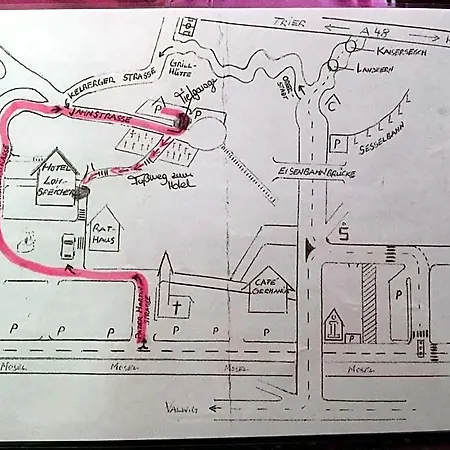 TRIER
A 48
KAISERSESCH
LANDKERN
GRILL-
HÜTTE
KELBERGER STRASSE
Tiefgarage
JAHNSTRASSE
P
P
C
P
SESSELBAHN
Fußweg zum
Hotel
HOTEL
LOHSPEICHER
EISENBAHNBRÜCKE
RAT-
HAUS
S
CAFÉ
GERMANIA
P
P
P
P
P
P
P
P
MOSEL
MOSEL
MOSEL
MOSEL
VALWIG